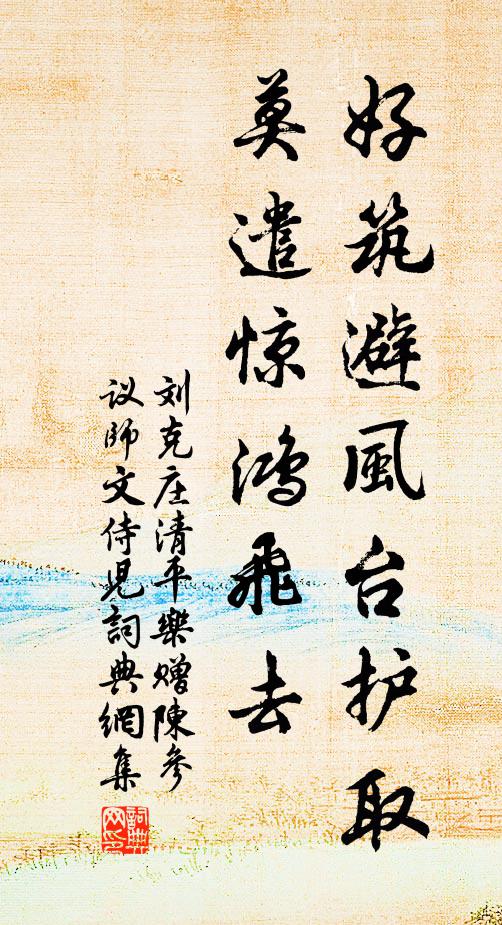 好筑避風台护取
莫遣惊鸿飛去
刘克庄清平樂赠陳参
议師文侍児詞典網集
詞典网印